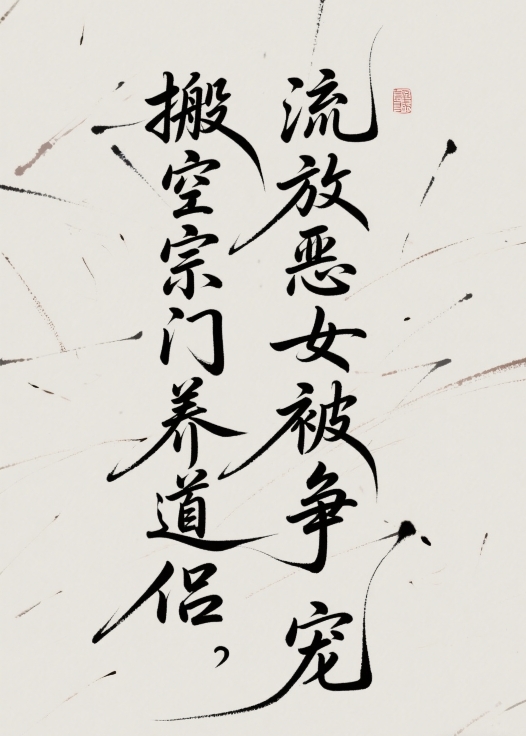 流放恶女被争宠
搬空宗门养道侣，